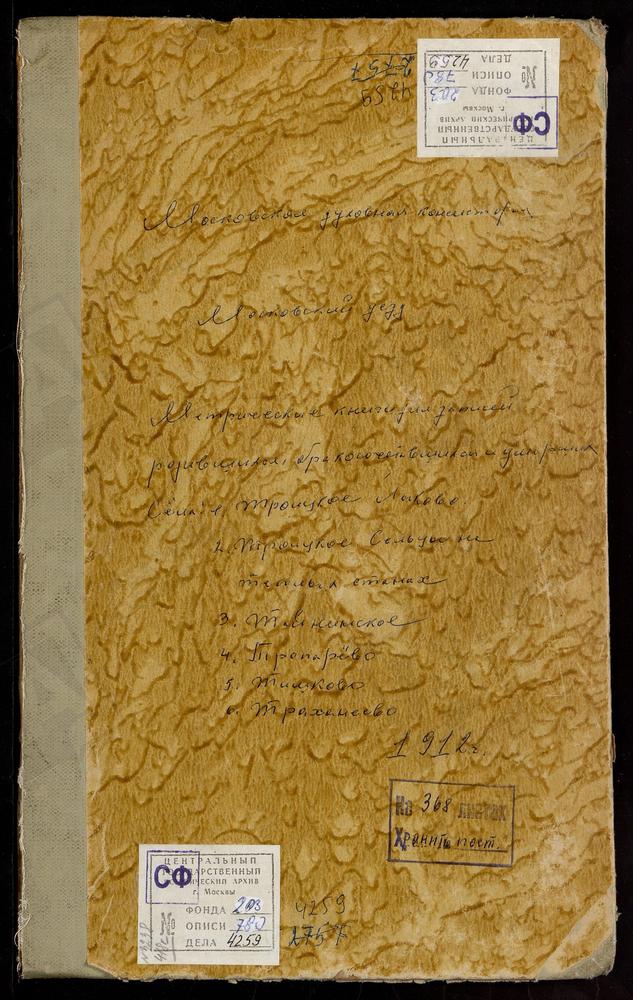 СФ
ЦЕНТРАЛЬНЫЙ
ГОСУДАРСТВЕННЫЙ
РИЧЕСКИЙ АРХИВ
г. Москвы
ФОНДА 203
№ ОПИСИ 780
ДЕЛА 4259
4259
2757
Московская духовная консистория
Московский уезд
Метрические книги для записей
родившихся, бракосочетавшихся и умерших
Села: 1. Троицкое
2. Троицкое Сельцы на
теплых станах
3. Тайнинское
4. Тропарёво
5. Тишково
6. Траханеево
1912 г.
На 368 листах
Хранить пост.
СФ
ЦЕНТРАЛЬНЫЙ
ГОСУДАРСТВЕННЫЙ
РИЧЕСКИЙ АРХИВ
г. Москвы
ФОНДА 203
№ ОПИСИ 780
ДЕЛА 4259
4259
2757